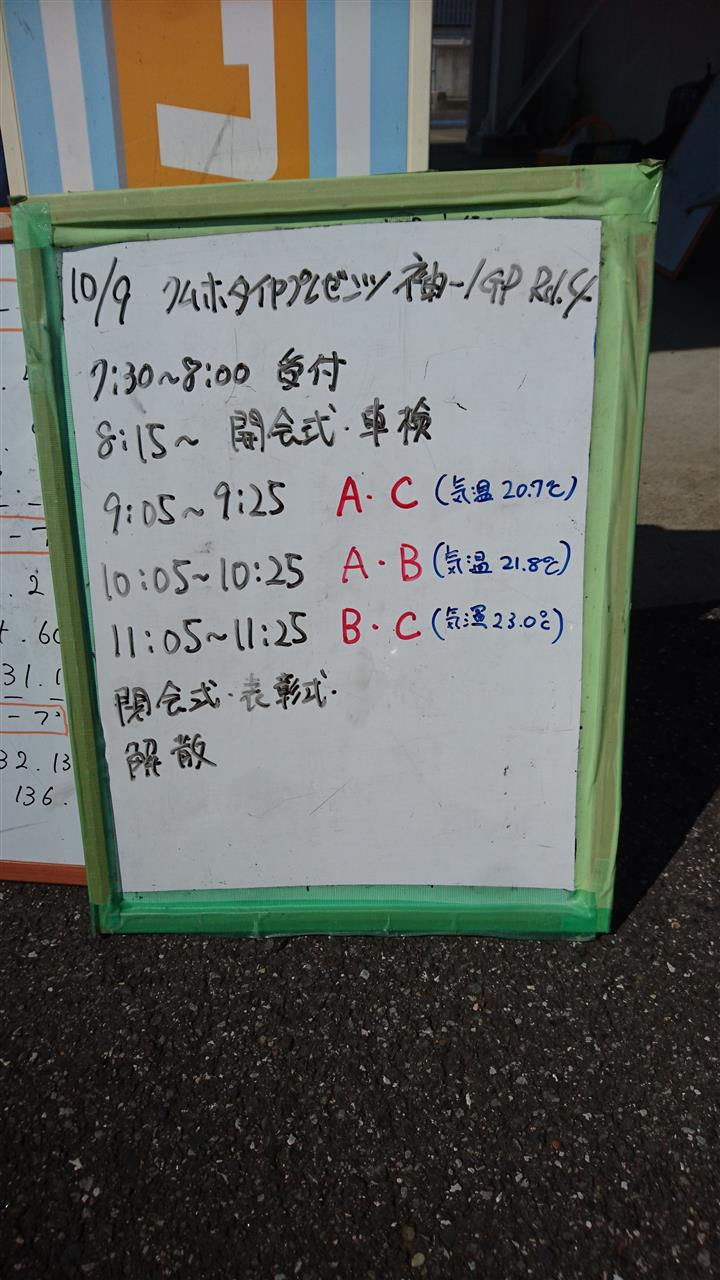 10/9 クムホタイヤプレゼンツ 袖-1GP Rd.4
7:30~8:00 受付
8:15~ 開会式・車検
9:05~9:25 A・C (気温20.7℃)
10:05~10:25 A・B (気温21.8℃)
11:05~11:25 B・C (気温23.0℃)
閉会式・表彰式・
解散
.2
.60
31.1
32.13
136.